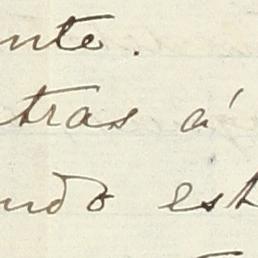 nte.
tras á
ndo est